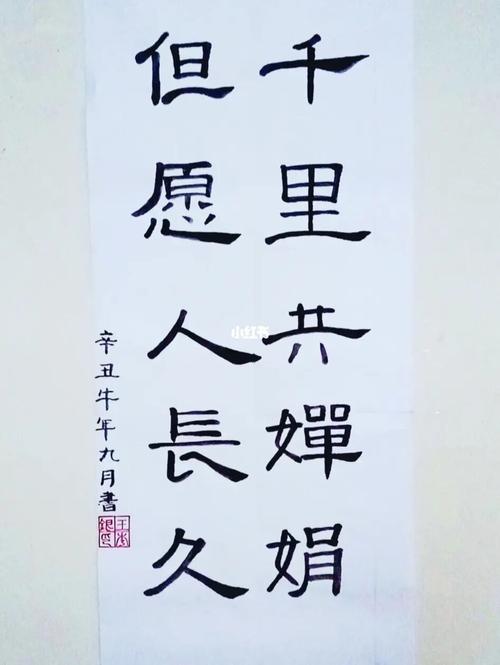 千里共嬋娟
但愿人長久
辛丑牛年九月書
小红书